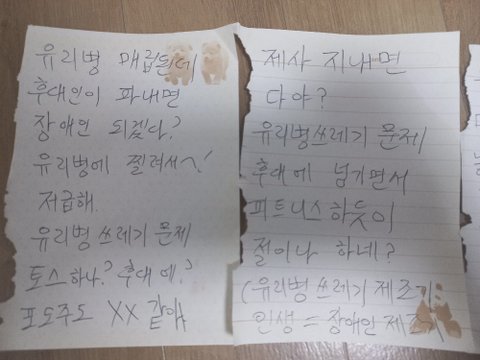 유리병 매립된데
후대인이 파내면
장애인 되겠다?
유리병에 찔려서~!
저급해.
유리병 쓰레기 문제
토스하나? 후대에?
포도주도 XX 같아
제사 지내면
다야?
유리병쓰레기 문제
후대에 넘기면서
피트니스하듯이
절이나 하네?
(유리병 쓰레기 제조기
인생 = 장애인 제조